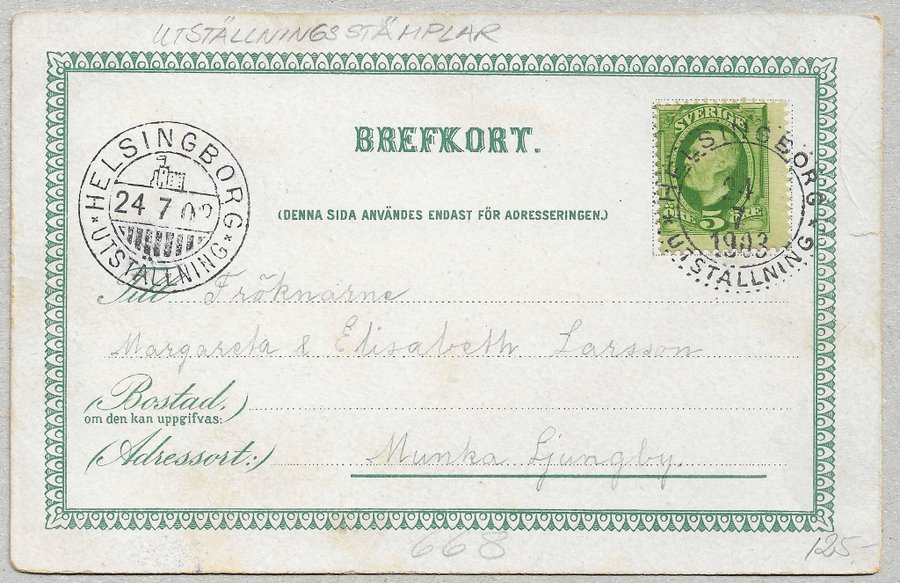 UTSTÄLLNINGSSTÄMPLAR
BREFKORT.
(DENNA SIDA ANVÄNDES ENDAST FÖR ADRESSERINGEN.)
HELSINGBORG
24 7 03
UTSTÄLLNING
SVERIGE
5
HELSINGBORG
7
1903
UTSTÄLLNING
Till Fröknarne
Margareta & Elisabeth Larsson
(Bostad,)
om den kan uppgifvas:
(Adressort:) Munka Ljungby.
668
125-